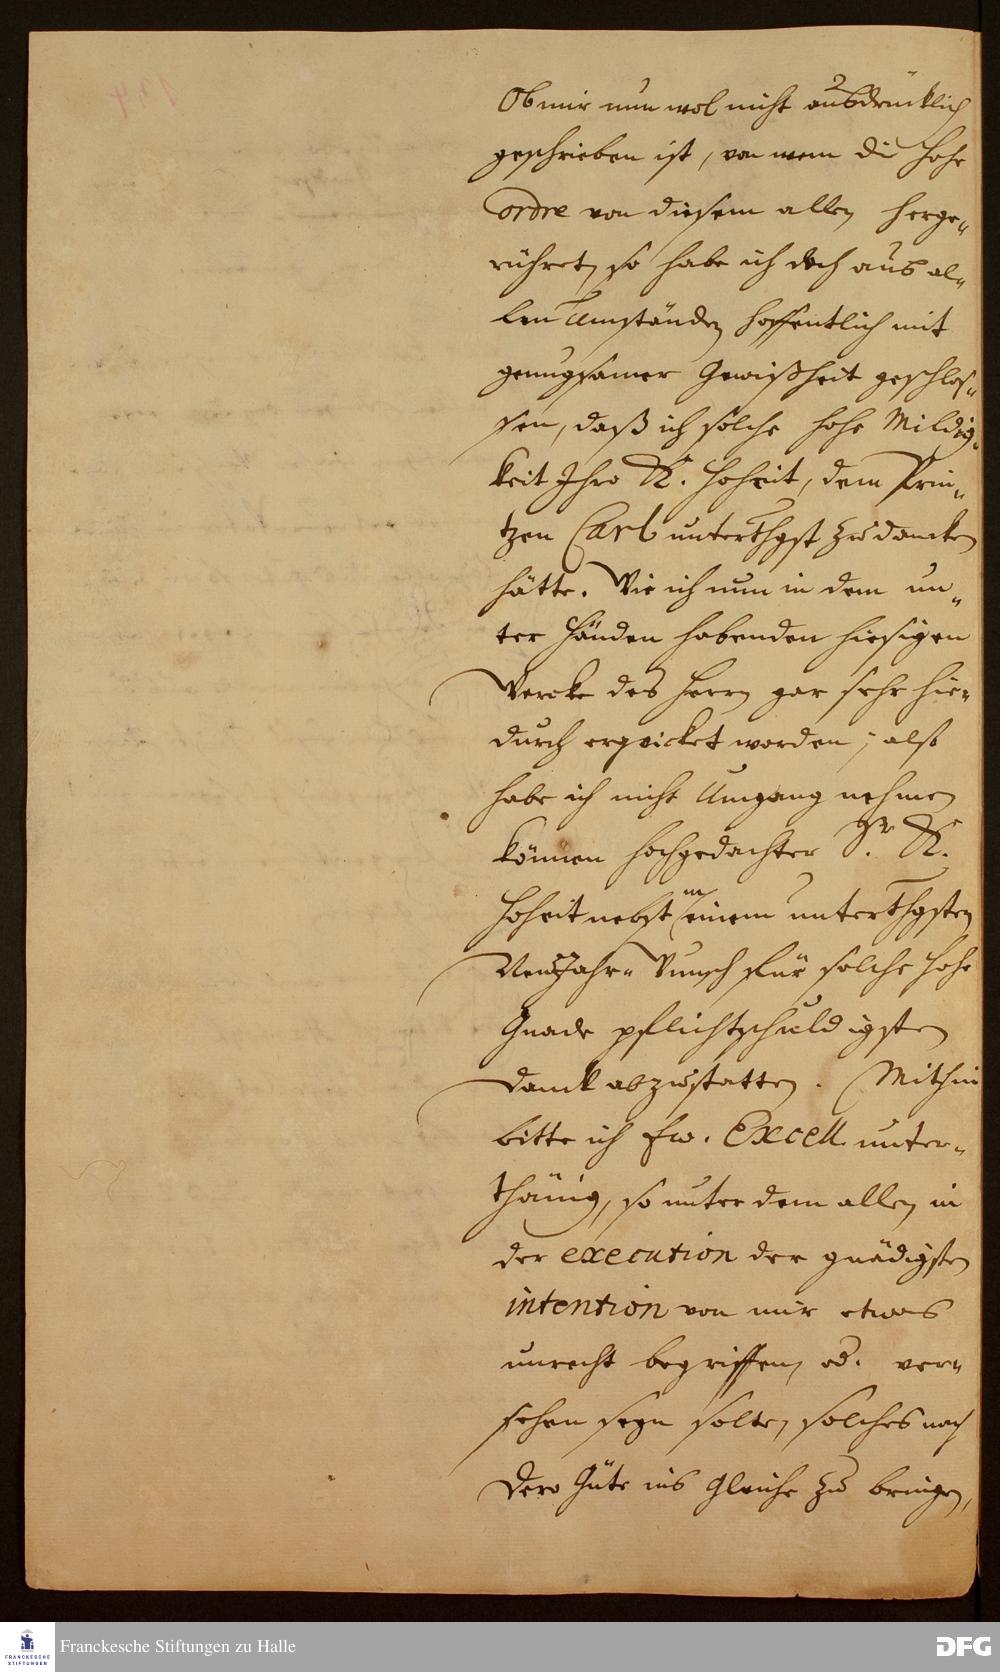 Ob mir nun wol nicht ausdrücklich
geschrieben ist, von wem die hohe
ordre von diesem allen herge-
rühret, so habe ich doch aus al-
len Umständen hoffentlich mit
genugsamer Gewißheit geschlos-
sen, daß ich solche hohe Mildig-
keit Ihro K. Hoheit, dem Prin-
tzen Carl unterthgst zu dancken
hätte. Wie ich nun in dem un-
ter Händen habenden hiesigen
Wercke des Herrn gar sehr hie-
durch erqvicket worden; alß
habe ich nicht Umgang nehmen
können hochgedachter Sr. K.
Hoheit nebst einem unterthgsten
Neu-Jahr-Wunsch für solche hohe
Gnade pflichtschuldigsten
Danck abzustatten. Mithin
bitte ich Ew. Excell. unter-
thänig, so unter dem allen in
der execution der gnädigsten
intention von mir etwas
unrecht begriffen, od. ver-
sehen seyn solte, solches nach
Dero Güte ins Gleiche zu bringen,
Franckesche Stiftungen zu Halle
FRANCKESCHE
STIFTUNGEN
DFG